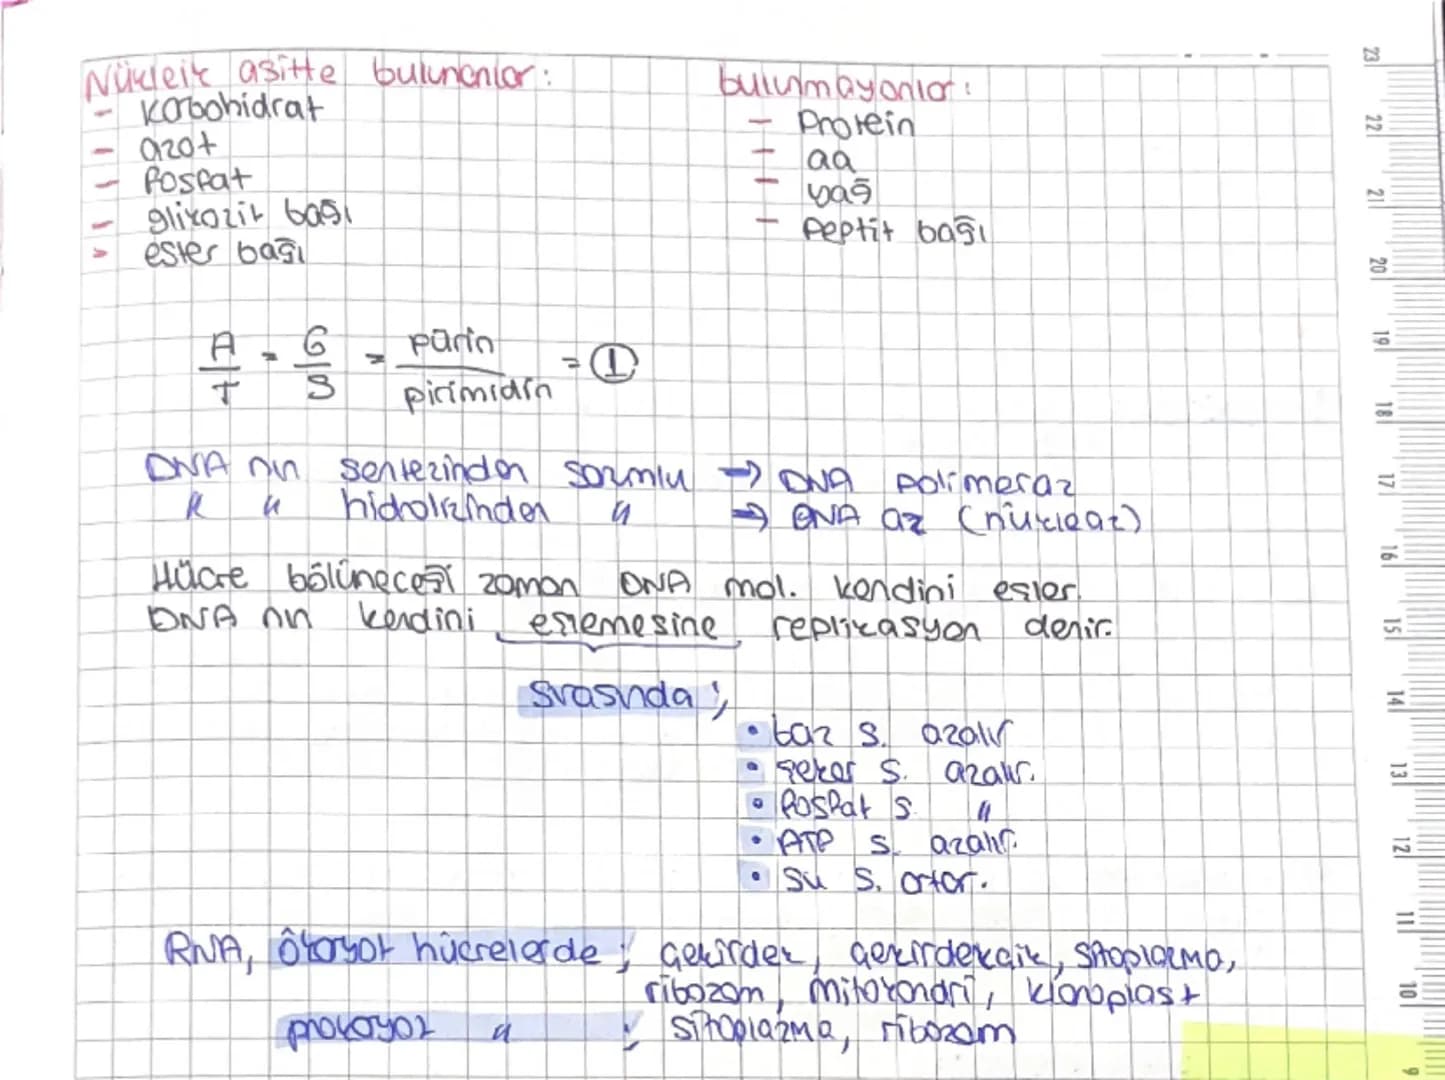 Nükleik asitte bulunanlar:
- karbohidrat
- azot
- fosfat
- glikozit bağı
- ester bağı
bulunmayanlar:
- Protein
- aa
- yağ
- peptit bağı
A/T = G/S = pürin/pirimidin = 1
DNA nın sentezinden sorumlu → DNA polimeraz
" " hidrolizinden " → DNA az (nükleaz)
Hücre bölüneceği zaman DNA mol. kendini eşler.
DNA nın kendini eşlemesine replikasyon denir.
sırasında;
• baz s. azalır
• şeker s. azalır.
• fosfat s. "
• ATP s. azalır.
• su s. artar.
RNA, ökaryot hücrelerde; çekirdek, çekirdekçik, sitoplazma,
ribozom, mitokondri, kloroplast
prokaryot " ; sitoplazma, ribozom
23
22
21
20
19
18
17
16
15
14
13
12
11
10
9